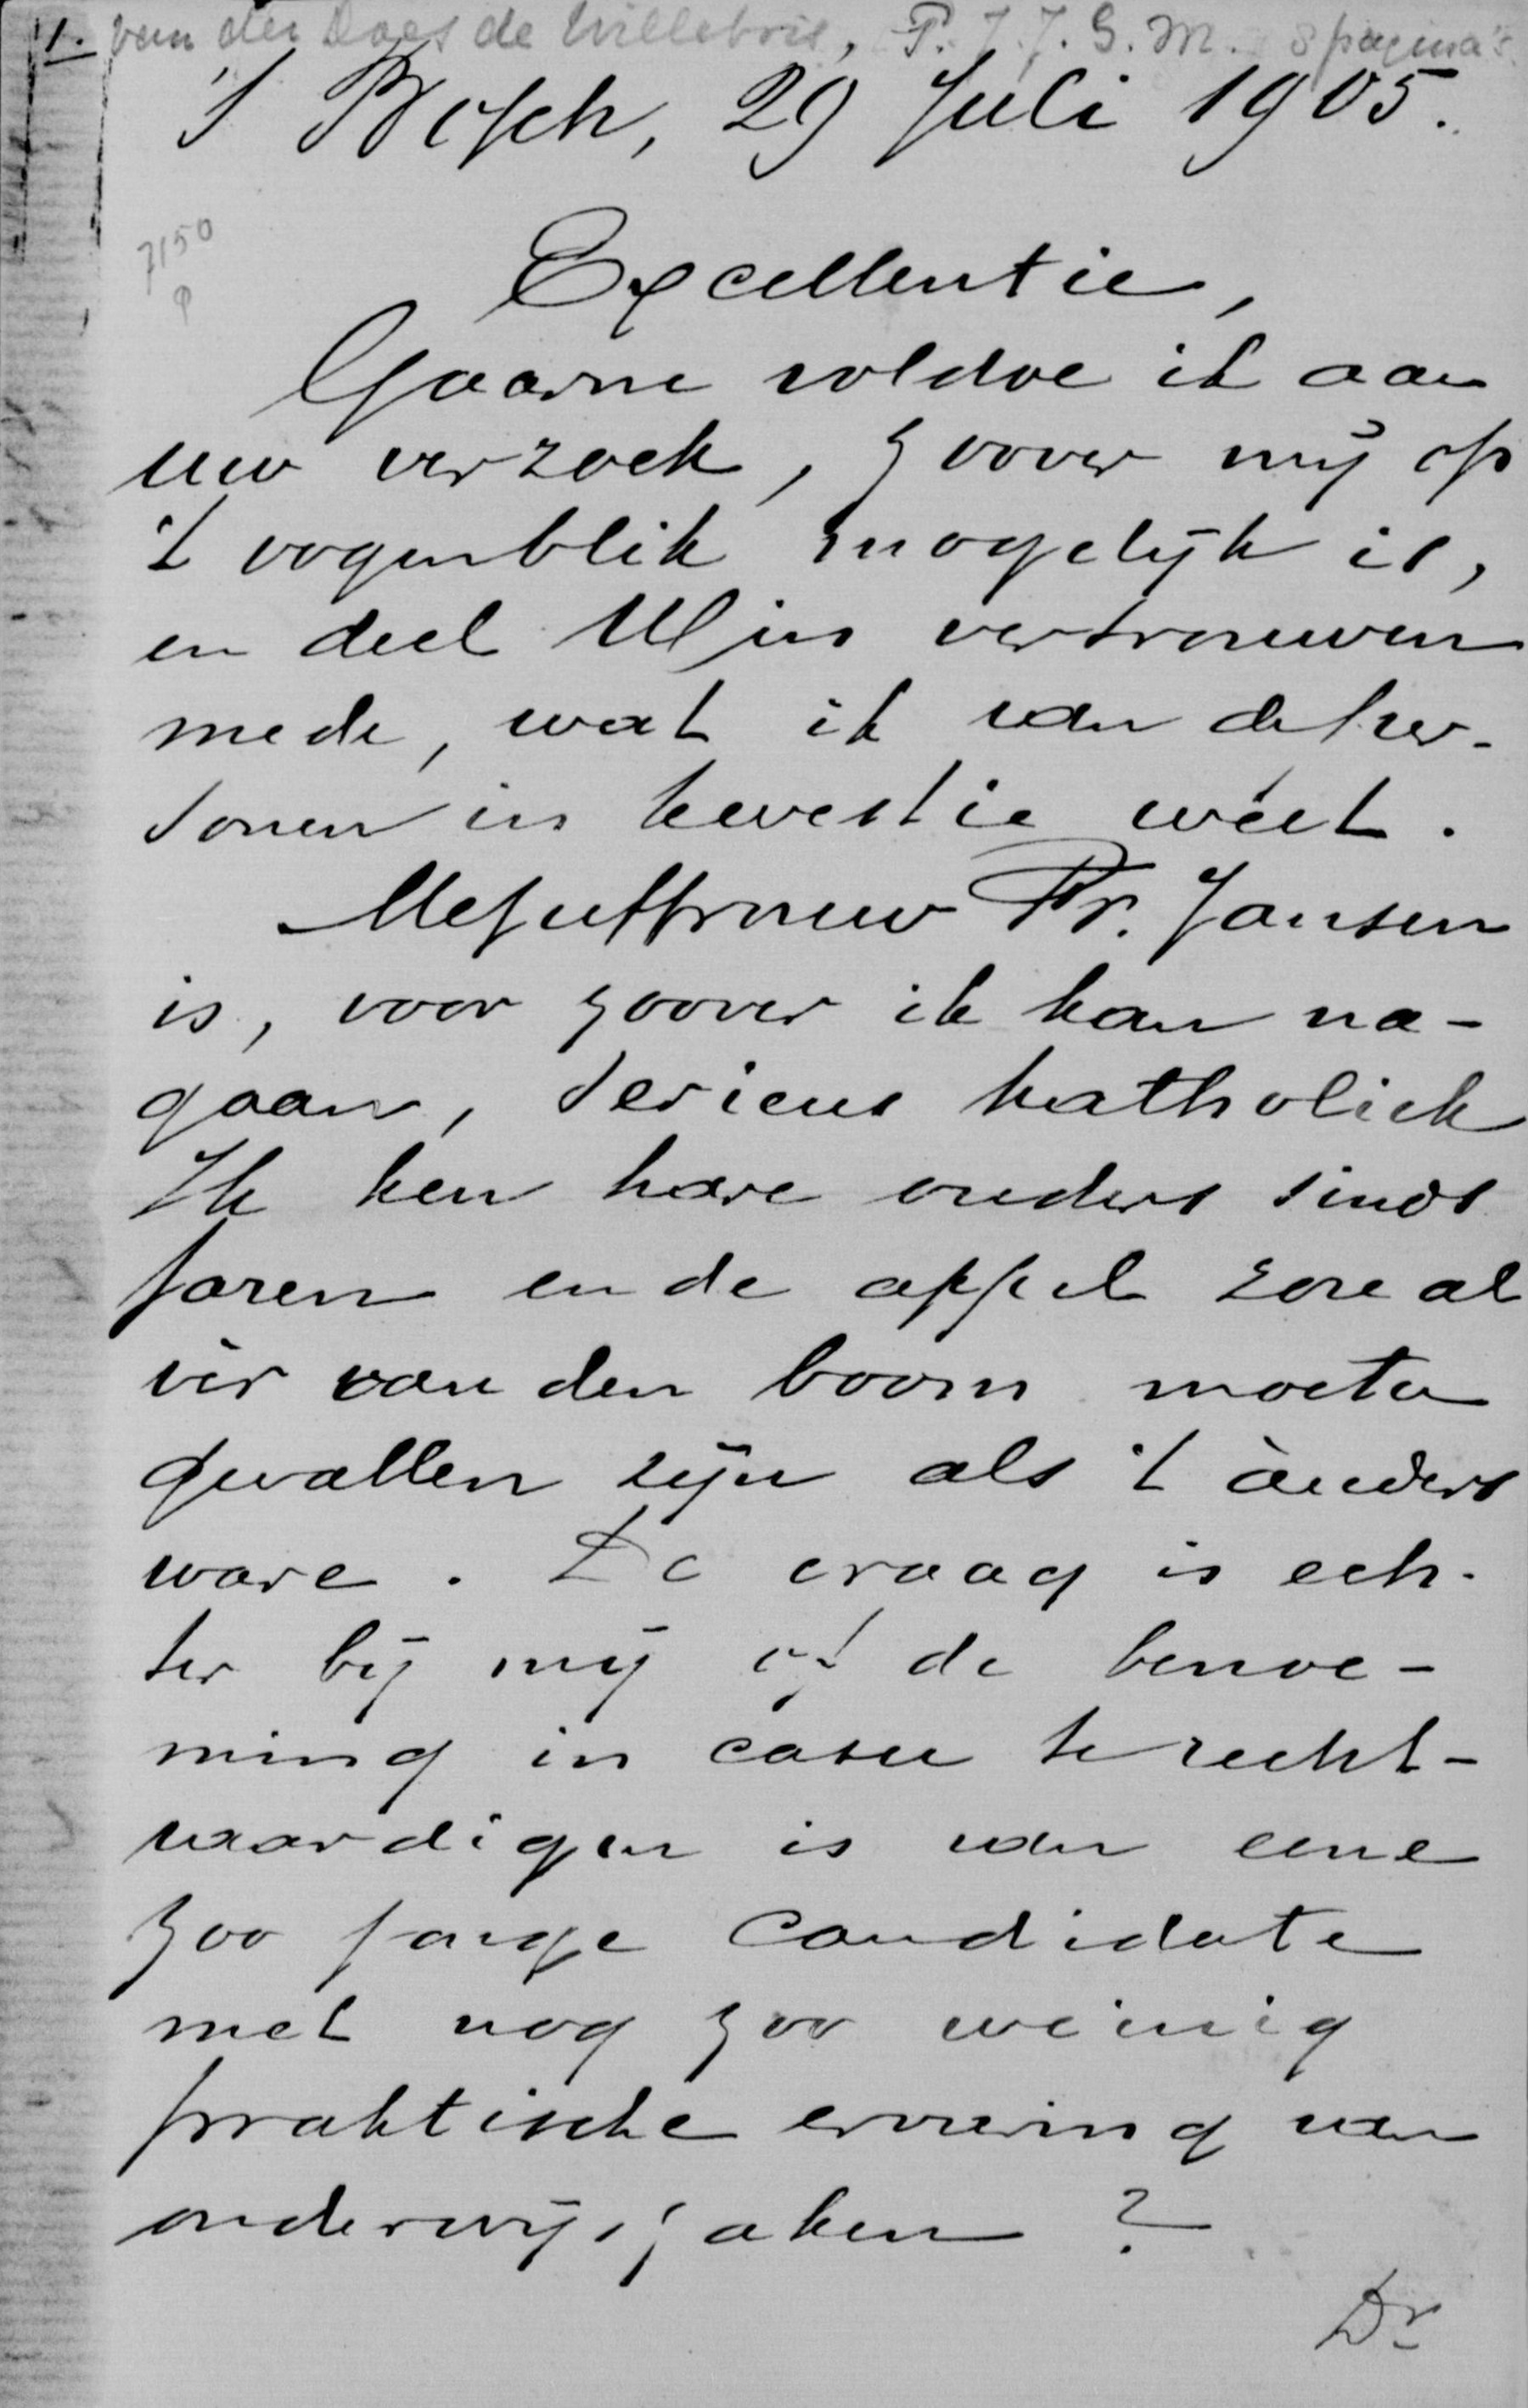 1. van der Does de Willebois, P.J.J.S.M. 8 pagina's
's Bosch, 29 Juli 1905.
7150
Excellentie,
Gaarne voldoe ik aan
uw verzoek, zoover mij op
't oogenblik mogelijk is,
en deel U in vertrouwen
mede, wat ik van de per-
sonen in kwestie wéét.
Mejuffrouw Fr. Jansen
is, voor zoover ik kan na-
gaan, serieus katholiek
Ik ken hare ouders sinds
jaren en de appel zoue al
vèr van den boom moeten
gevallen zijn als 't ànders
ware. De vraag is ech-
ter bij mij of de benoe-
ming in casu te recht-
vaardigen is van eene
zoo jonge candidate
met nog zoo weinig
praktische ervaring van
onderwijszaken?
Dr